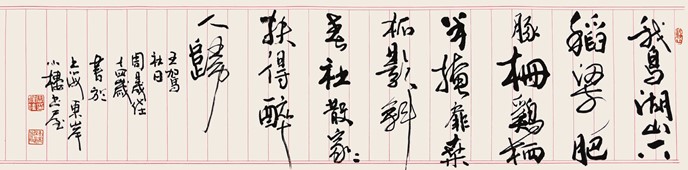 鵞湖山下
稻粱肥
豚柵鷄栖
半掩扉桑
柘影斜
春社散家〻
扶得醉
人歸
王駕
社日
周
十四歲
書於
上海東岸
小樓書屋